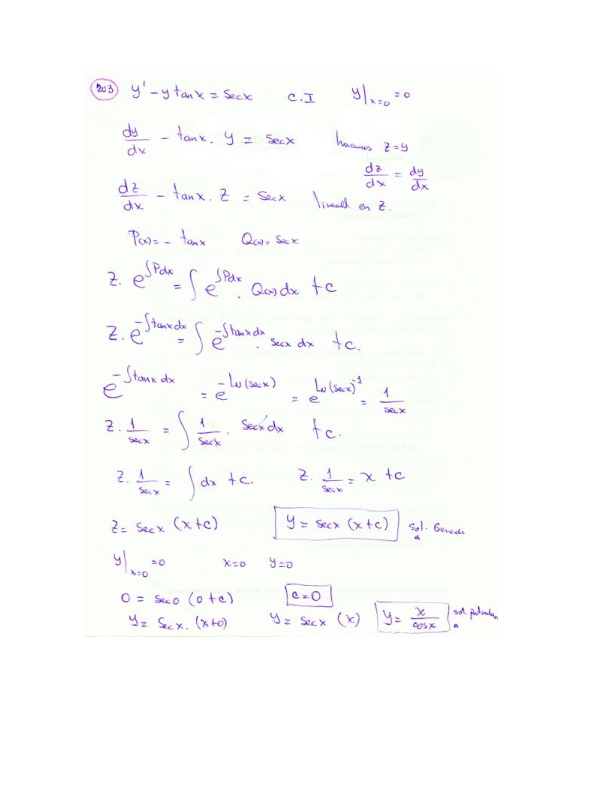 203 y' - y tanx = secx C.I y|x=0 = 0
dy/dx - tanx. y = secx hacemos z = y
dz/dx = dy/dx
dz/dx - tanx. z = secx lineal en z.
P(x) = - tanx Q(x) = secx
z. e^∫Pdx = ∫ e^∫Pdx . Q(x) dx + c
z. e^-∫tanxdx = ∫ e^-∫tanxdx . secx dx + c.
e^-∫tanx dx = e^-Ln(secx) = e^Ln(secx)^-1 = 1/secx
z. 1/secx = ∫ 1/secx . secx dx + c.
z. 1/secx = ∫ dx + c. z. 1/secx = x + c
z = secx (x+c) y = secx (x+c) sol. General
y|x=0 = 0 x=0 y=0
0 = sec0 (0+c) c=0
y = secx. (x+0) y = secx (x) y = x/cosx sol